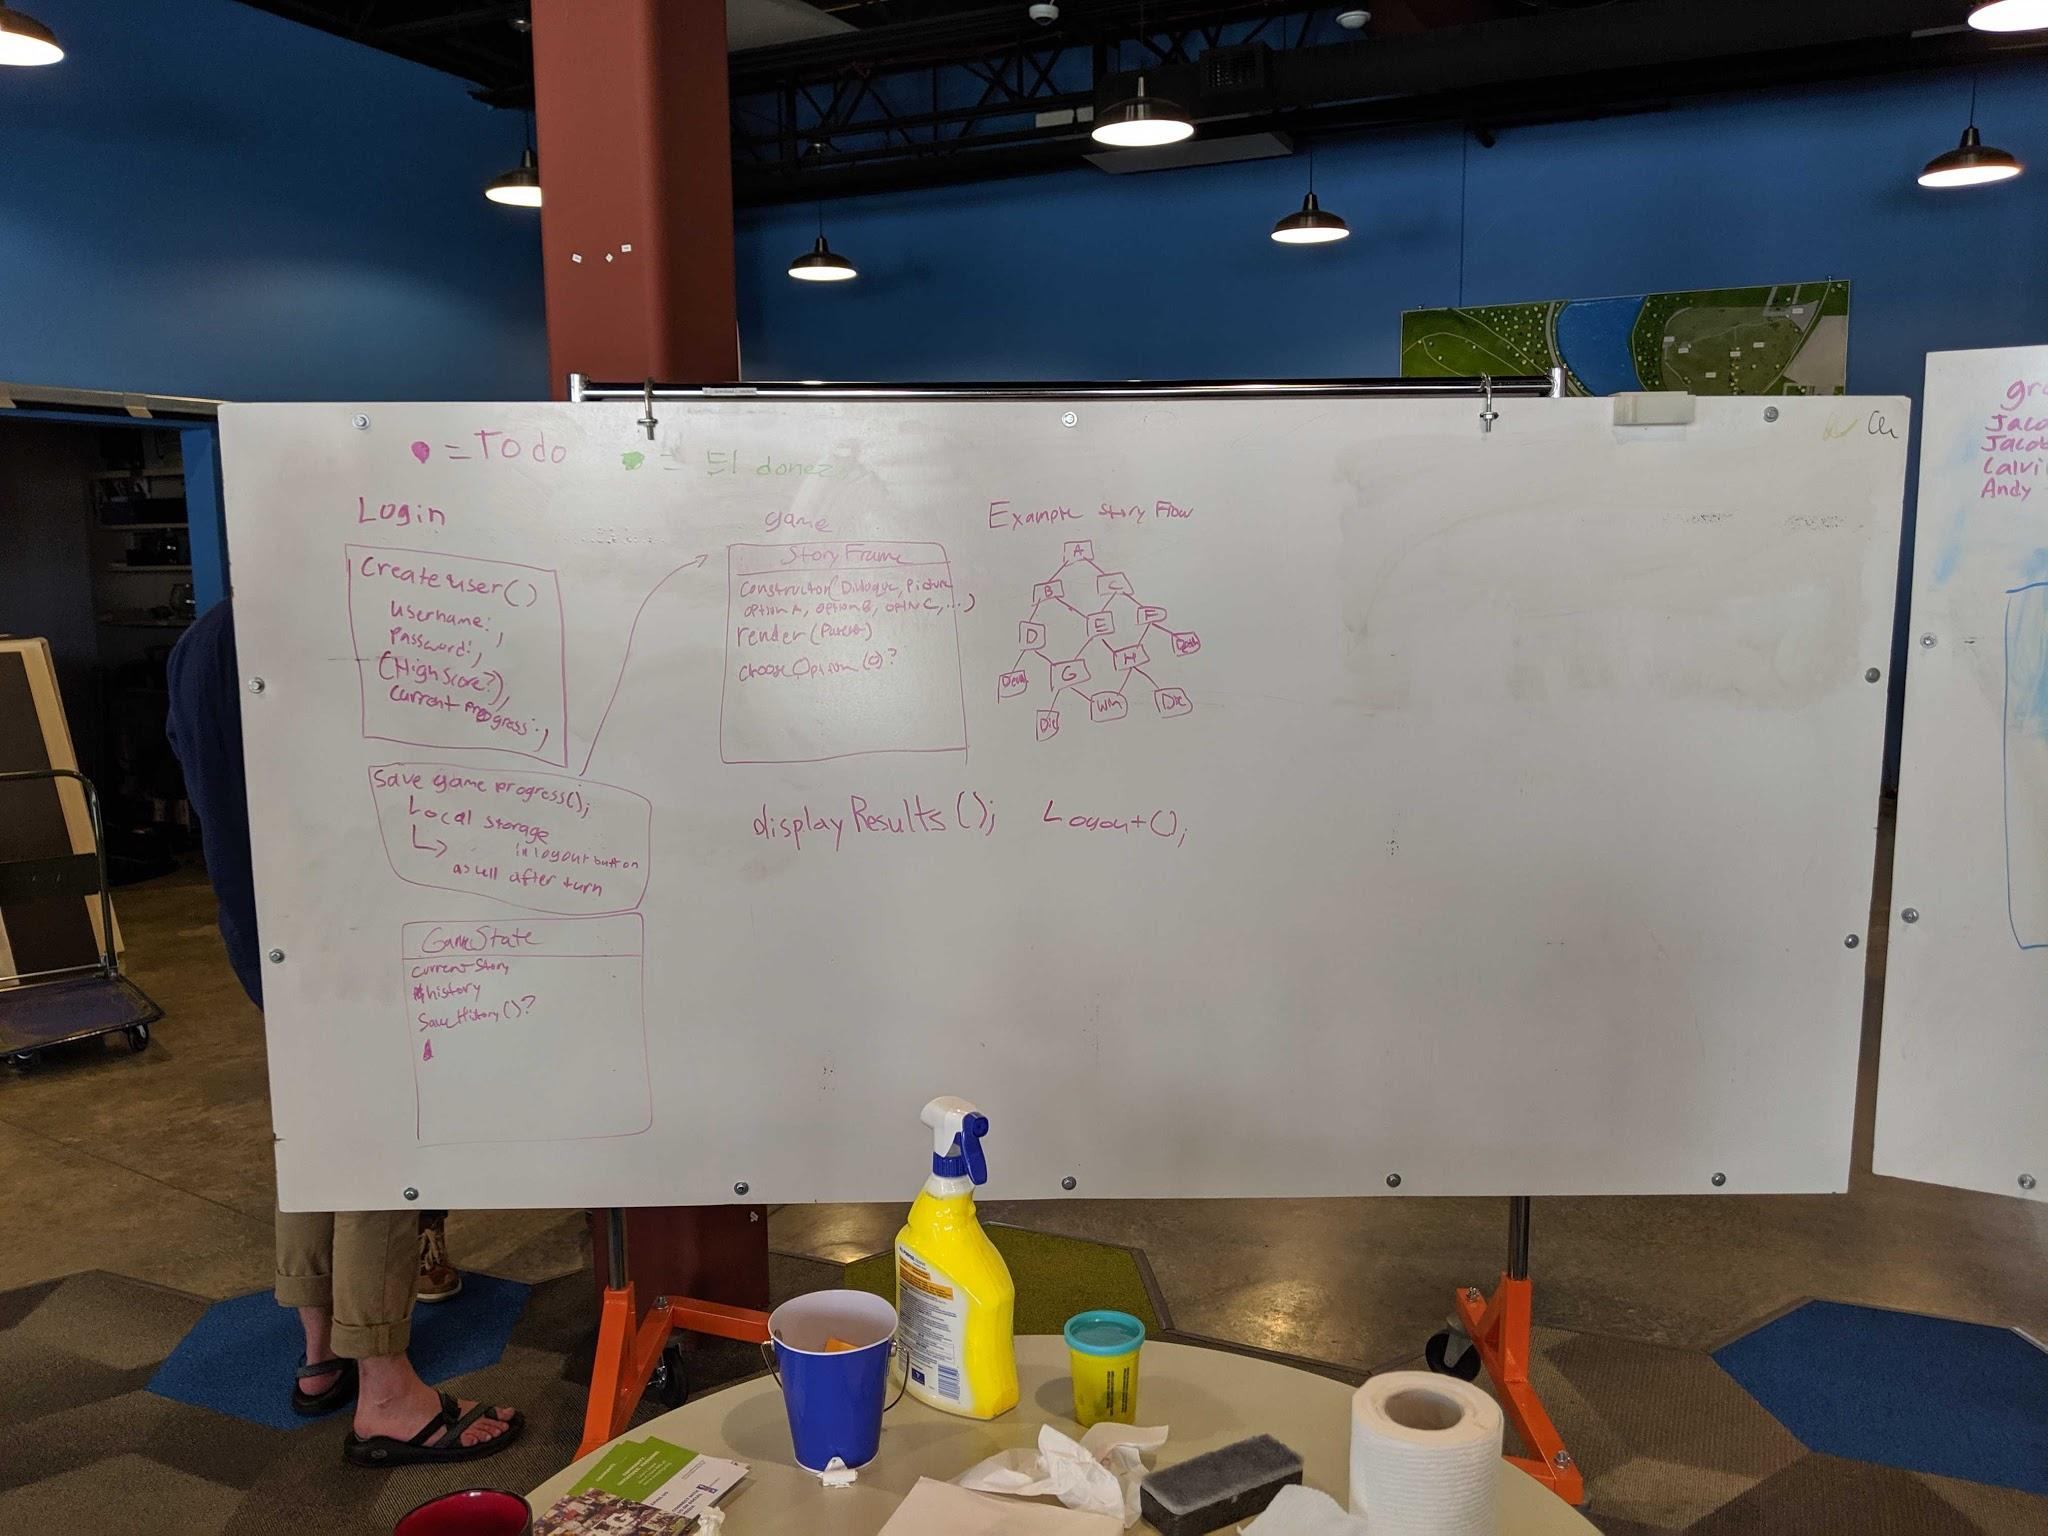 = To do
= El donez
Login
Create user()
username: ,
Password: ,
(High Score?),
Current progress: ,
Save game progress();
Local storage
in logout button
as well after turn
GameState
currentStory
history
SaveHistory()?
game
Story Frame
Constructor(Dialogue, Picture
option A, option B, option C, ...)
render(Parent)
chooseOption(o)?
Example Story Flow
A
B
C
D
E
F
Death
G
H
Die
Win
Die
displayResults();
Logout();
Jaco
Jacob
Calvi
Andy